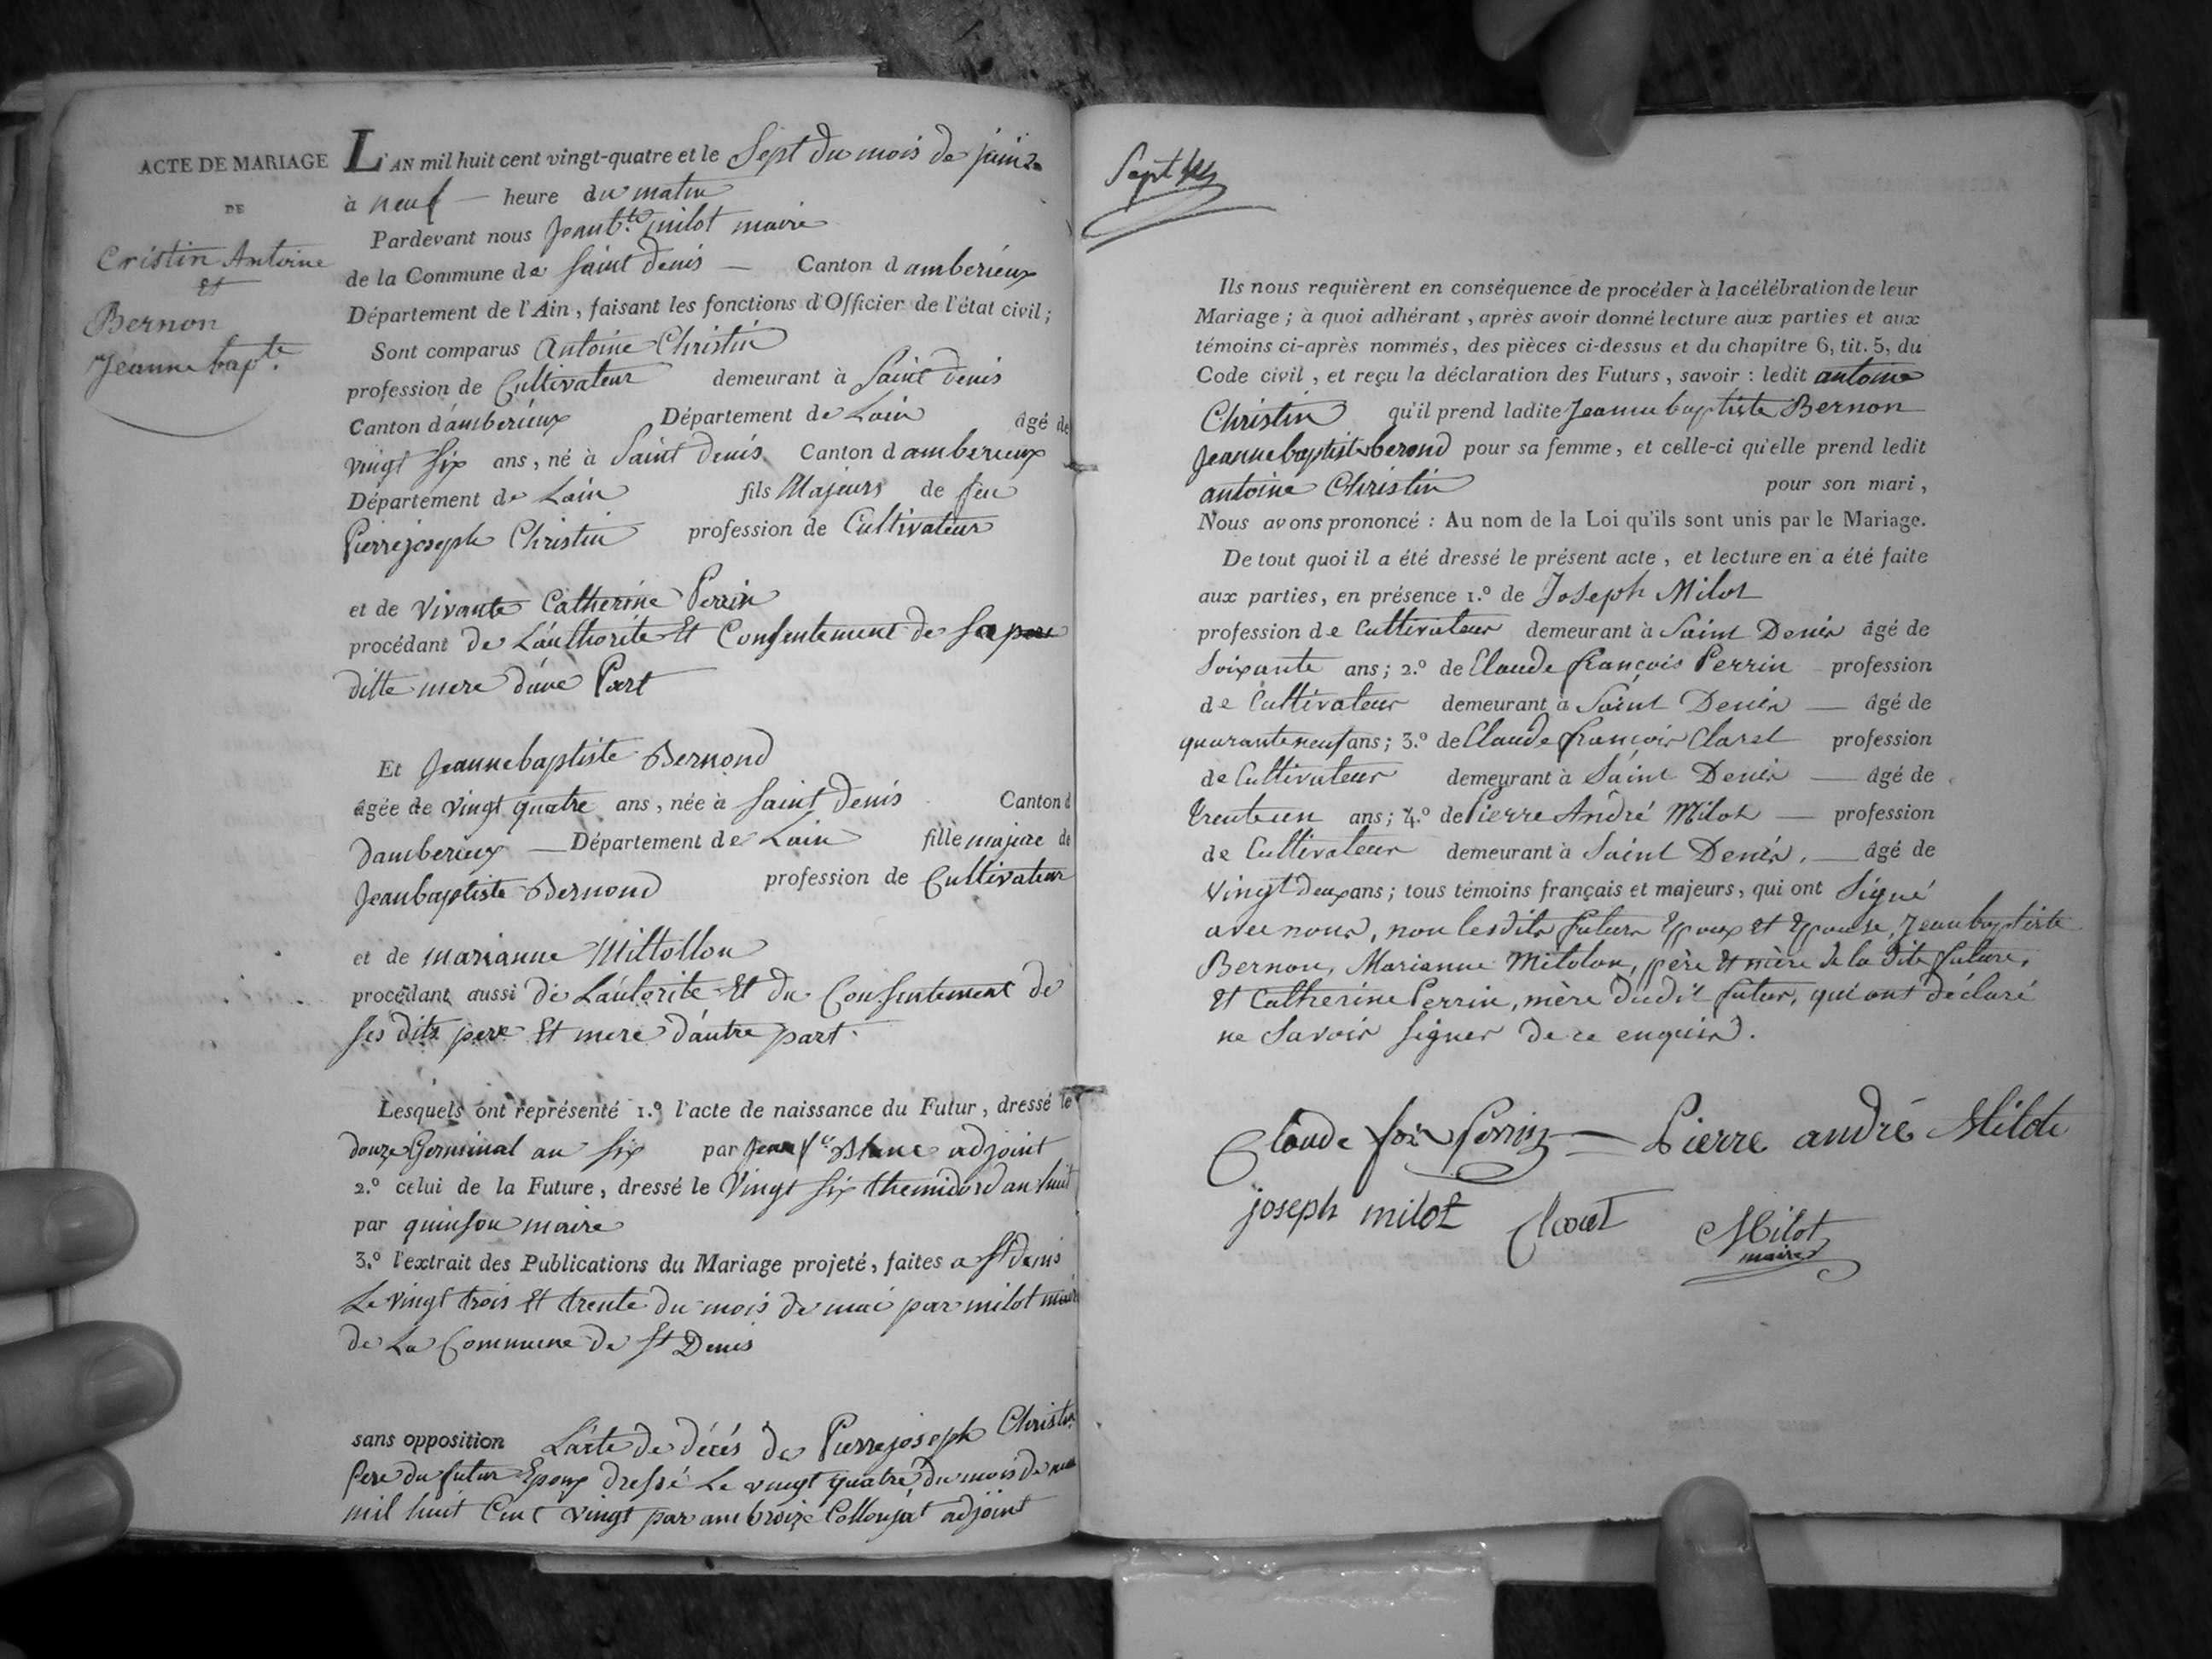 ACTE DE MARIAGE
DE
Cristin Antoine
et
Bernon
Jeanne bapte.
L'AN mil huit cent vingt-quatre et le Sept du mois de juin
à neuf — heure du matin
Pardevant nous Jean bte. milot maire
de la Commune de Saint denis — Canton d amberieux
Département de l'Ain, faisant les fonctions d'Officier de l'état civil;
Sont comparus Antoine Christin
profession de Cultivateur demeurant à Saint denis
Canton d'amberieux Département de Lain âgé de
vingt six ans, né à Saint denis Canton d amberieux
Département de Lain fils Majeurs de feu
Pierrejoseph Christin profession de Cultivateur
et de vivante Catherine Perrin
procédant de L'authorite Et Consentement de sa
ditte mere d'une Part
Et Jeannebaptiste Bernond
âgée de vingt quatre ans, née à Saint denis Canton d
damberieux — Département de Lain fille majeure de
Jeanbaptiste Bernond profession de Cultivateur
et de marianne Mittollon
procédant aussi de L'autorite Et du Consentement de
ses dits pere Et mere d'autre part.
Lesquels ont représenté 1.º l'acte de naissance du Futur, dressé le
douze Germinal an six par adjoint
2.º celui de la Future, dressé le Vingt six themidord an huit
par quinson maire
3.º l'extrait des Publications du Mariage projeté, faites a St denis
Le vingt trois Et trente du mois de mai par milot maire
de La Commune de St Denis
sans opposition L'acte de décés de Pierrejoseph Christin
Pere du futur Epoux dressé Le vingt quatre du mois de
mil huit Cent vingt par ambroize Collonjat adjoint
Sept
Ils nous requièrent en conséquence de procéder à la célébration de leur
Mariage; à quoi adhérant, après avoir donné lecture aux parties et aux
témoins ci-après nommés, des pièces ci-dessus et du chapitre 6, tit. 5, du
Code civil, et reçu la déclaration des Futurs, savoir: ledit antoine
Christin qu'il prend ladite Jeanne baptiste Bernon
Jeannebaptiste berond pour sa femme, et celle-ci qu'elle prend ledit
antoine Christin pour son mari,
Nous avons prononcé: Au nom de la Loi qu'ils sont unis par le Mariage.
De tout quoi il a été dressé le présent acte, et lecture en a été faite
aux parties, en présence 1.º de Joseph Milot
profession de Cultivateur demeurant à Saint Denis âgé de
Soixante ans; 2.º de Claude françois Perrin profession
de Cultivateur demeurant à Saint Denis — âgé de
quarante neuf ans; 3.º de Claude françois Claret profession
de Cultivateur demeurant à Saint Denis — âgé de
trente un ans; 4.º de Pierre André Milot — profession
de Cultivateur demeurant à Saint Denis. — âgé de
Vingt deux ans; tous témoins français et majeurs, qui ont Signé
avec nous, non lesdits futurs Epoux et Epouse, Jean baptiste
Bernon, Marianne Mitolon, père et mère de la dite future,
et Catherine Perrin, mère dudit futur, qui ont déclaré
ne Savoir signer de ce enquis.
Claude foi Perrin Pierre andré Milot
joseph milot Claret Milot
maire